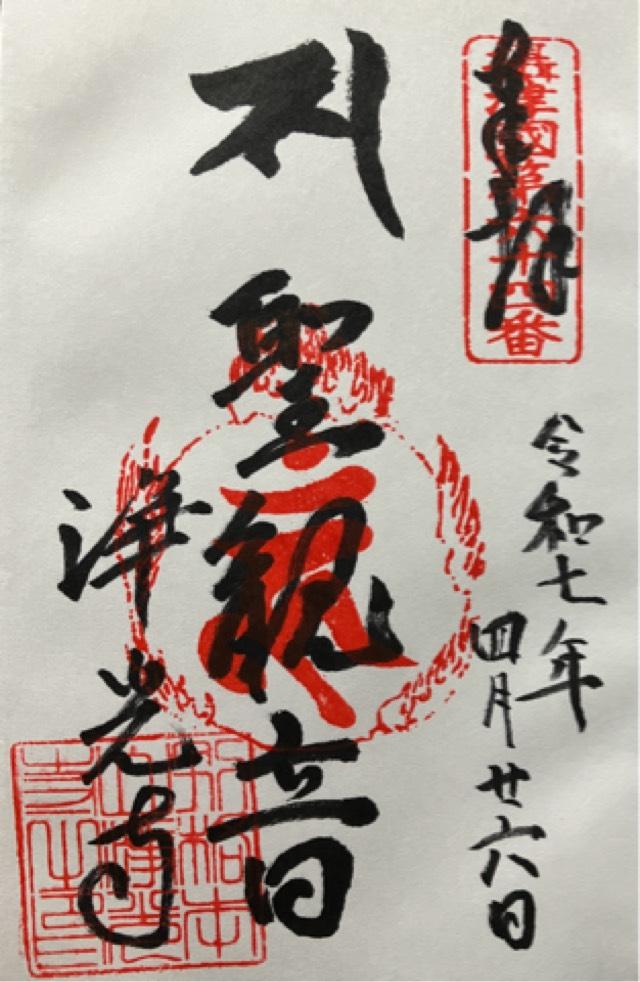 奉拝
攝津國第六十四番
令和七年
四月廿六日
聖観音
浄光寺